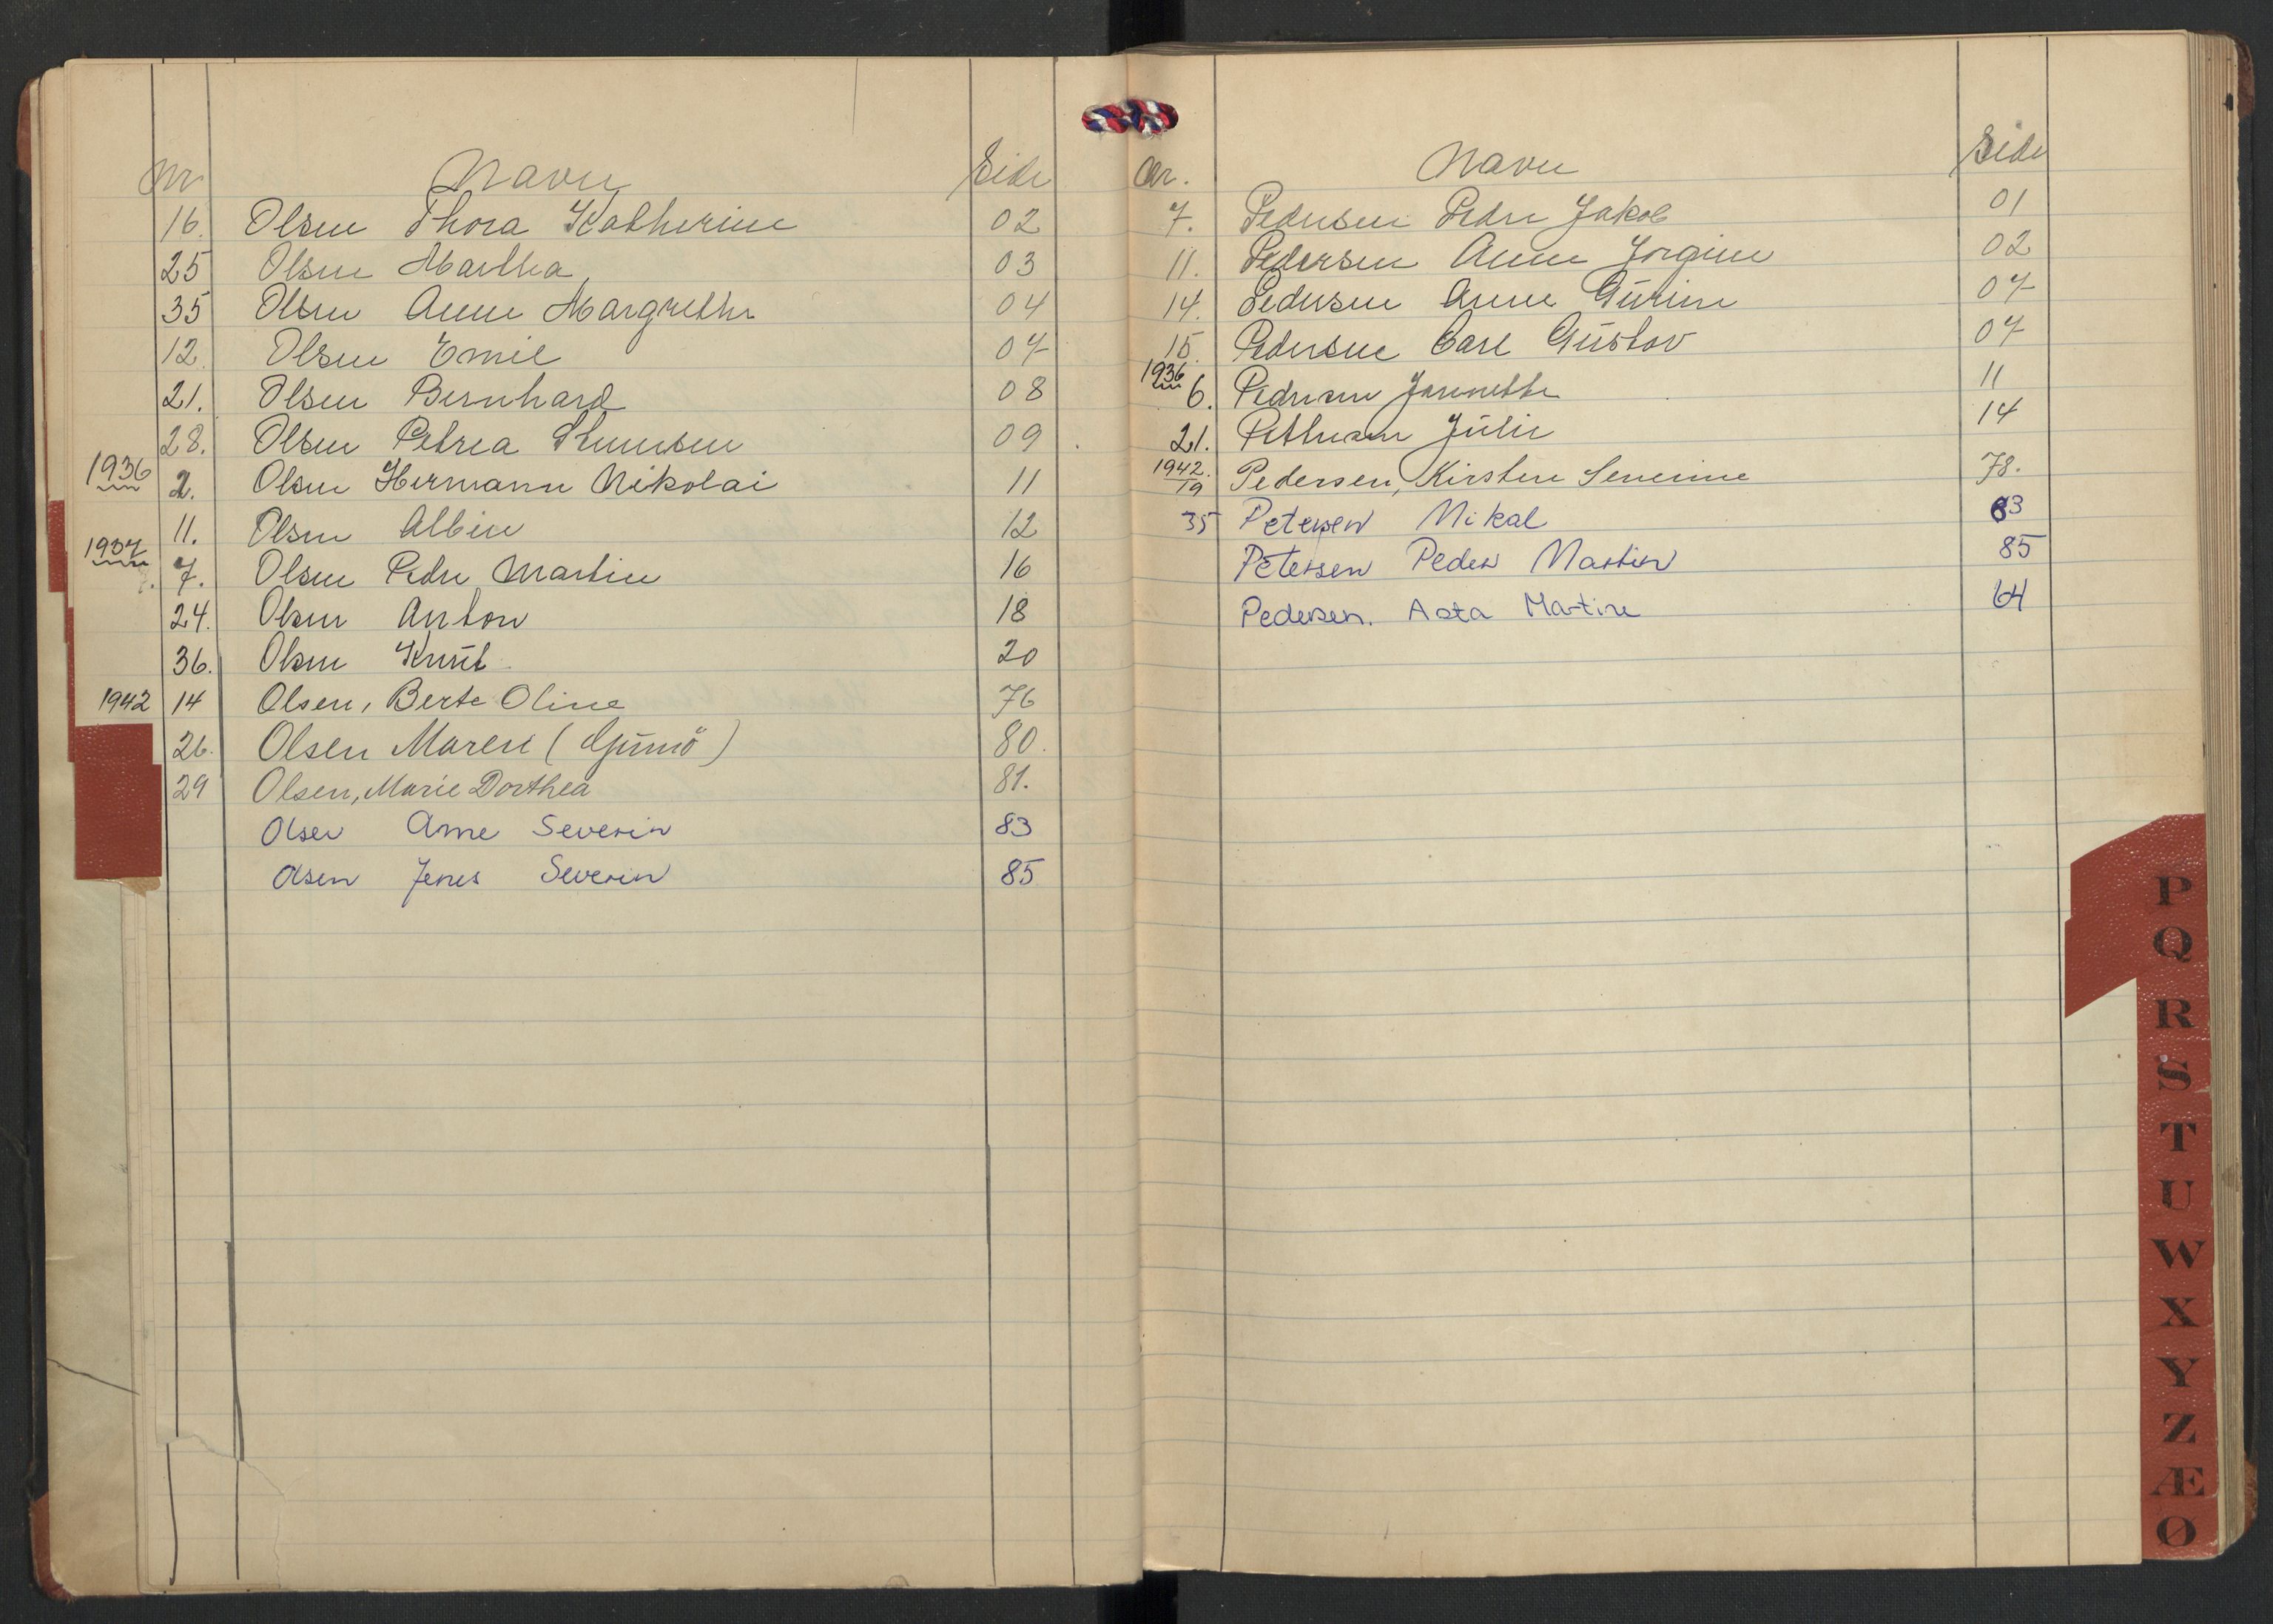 Nr. Navn Side
16. Olsen Thora Katherine 02
25 Olsen Martha 03
35 Olsen Anne Margrethe 04
12. Olsen Emil 07
21. Olsen Bernhard 08
28. Olsen Petrea 09
1936 2. Olsen Hermann Nikolai 11
11. Olsen Albin 12
1937 7. Olsen Peder Martin 16
24. Olsen Anton 18
36. Olsen Knut 20
1942 14 Olsen, Berte Oline 76
26. Olsen Maren ( ) 80.
29 Olsen, Marie Dorthea 81.
Olsen Arne Severin 83
Olsen Jenes Severin 85
Nr. Navn Side
7. Pedersen Peder Jakob 01
11. Pedersen Anne Jorgine 02
14. Pedersen Anne Gurine 07
15. Pedersen Carl Gustav 07
1936 6. Pedersen Jannette 11
21. Julie 14
1942. 19 Pedersen, Kirsten Severine 78.
35 Petersen Mikal 83
Petersen Peder Martin 85
Pedersen. Asta Martine 64
P
Q
R
S
T
U
W
X
Y
Z
Æ
Ø